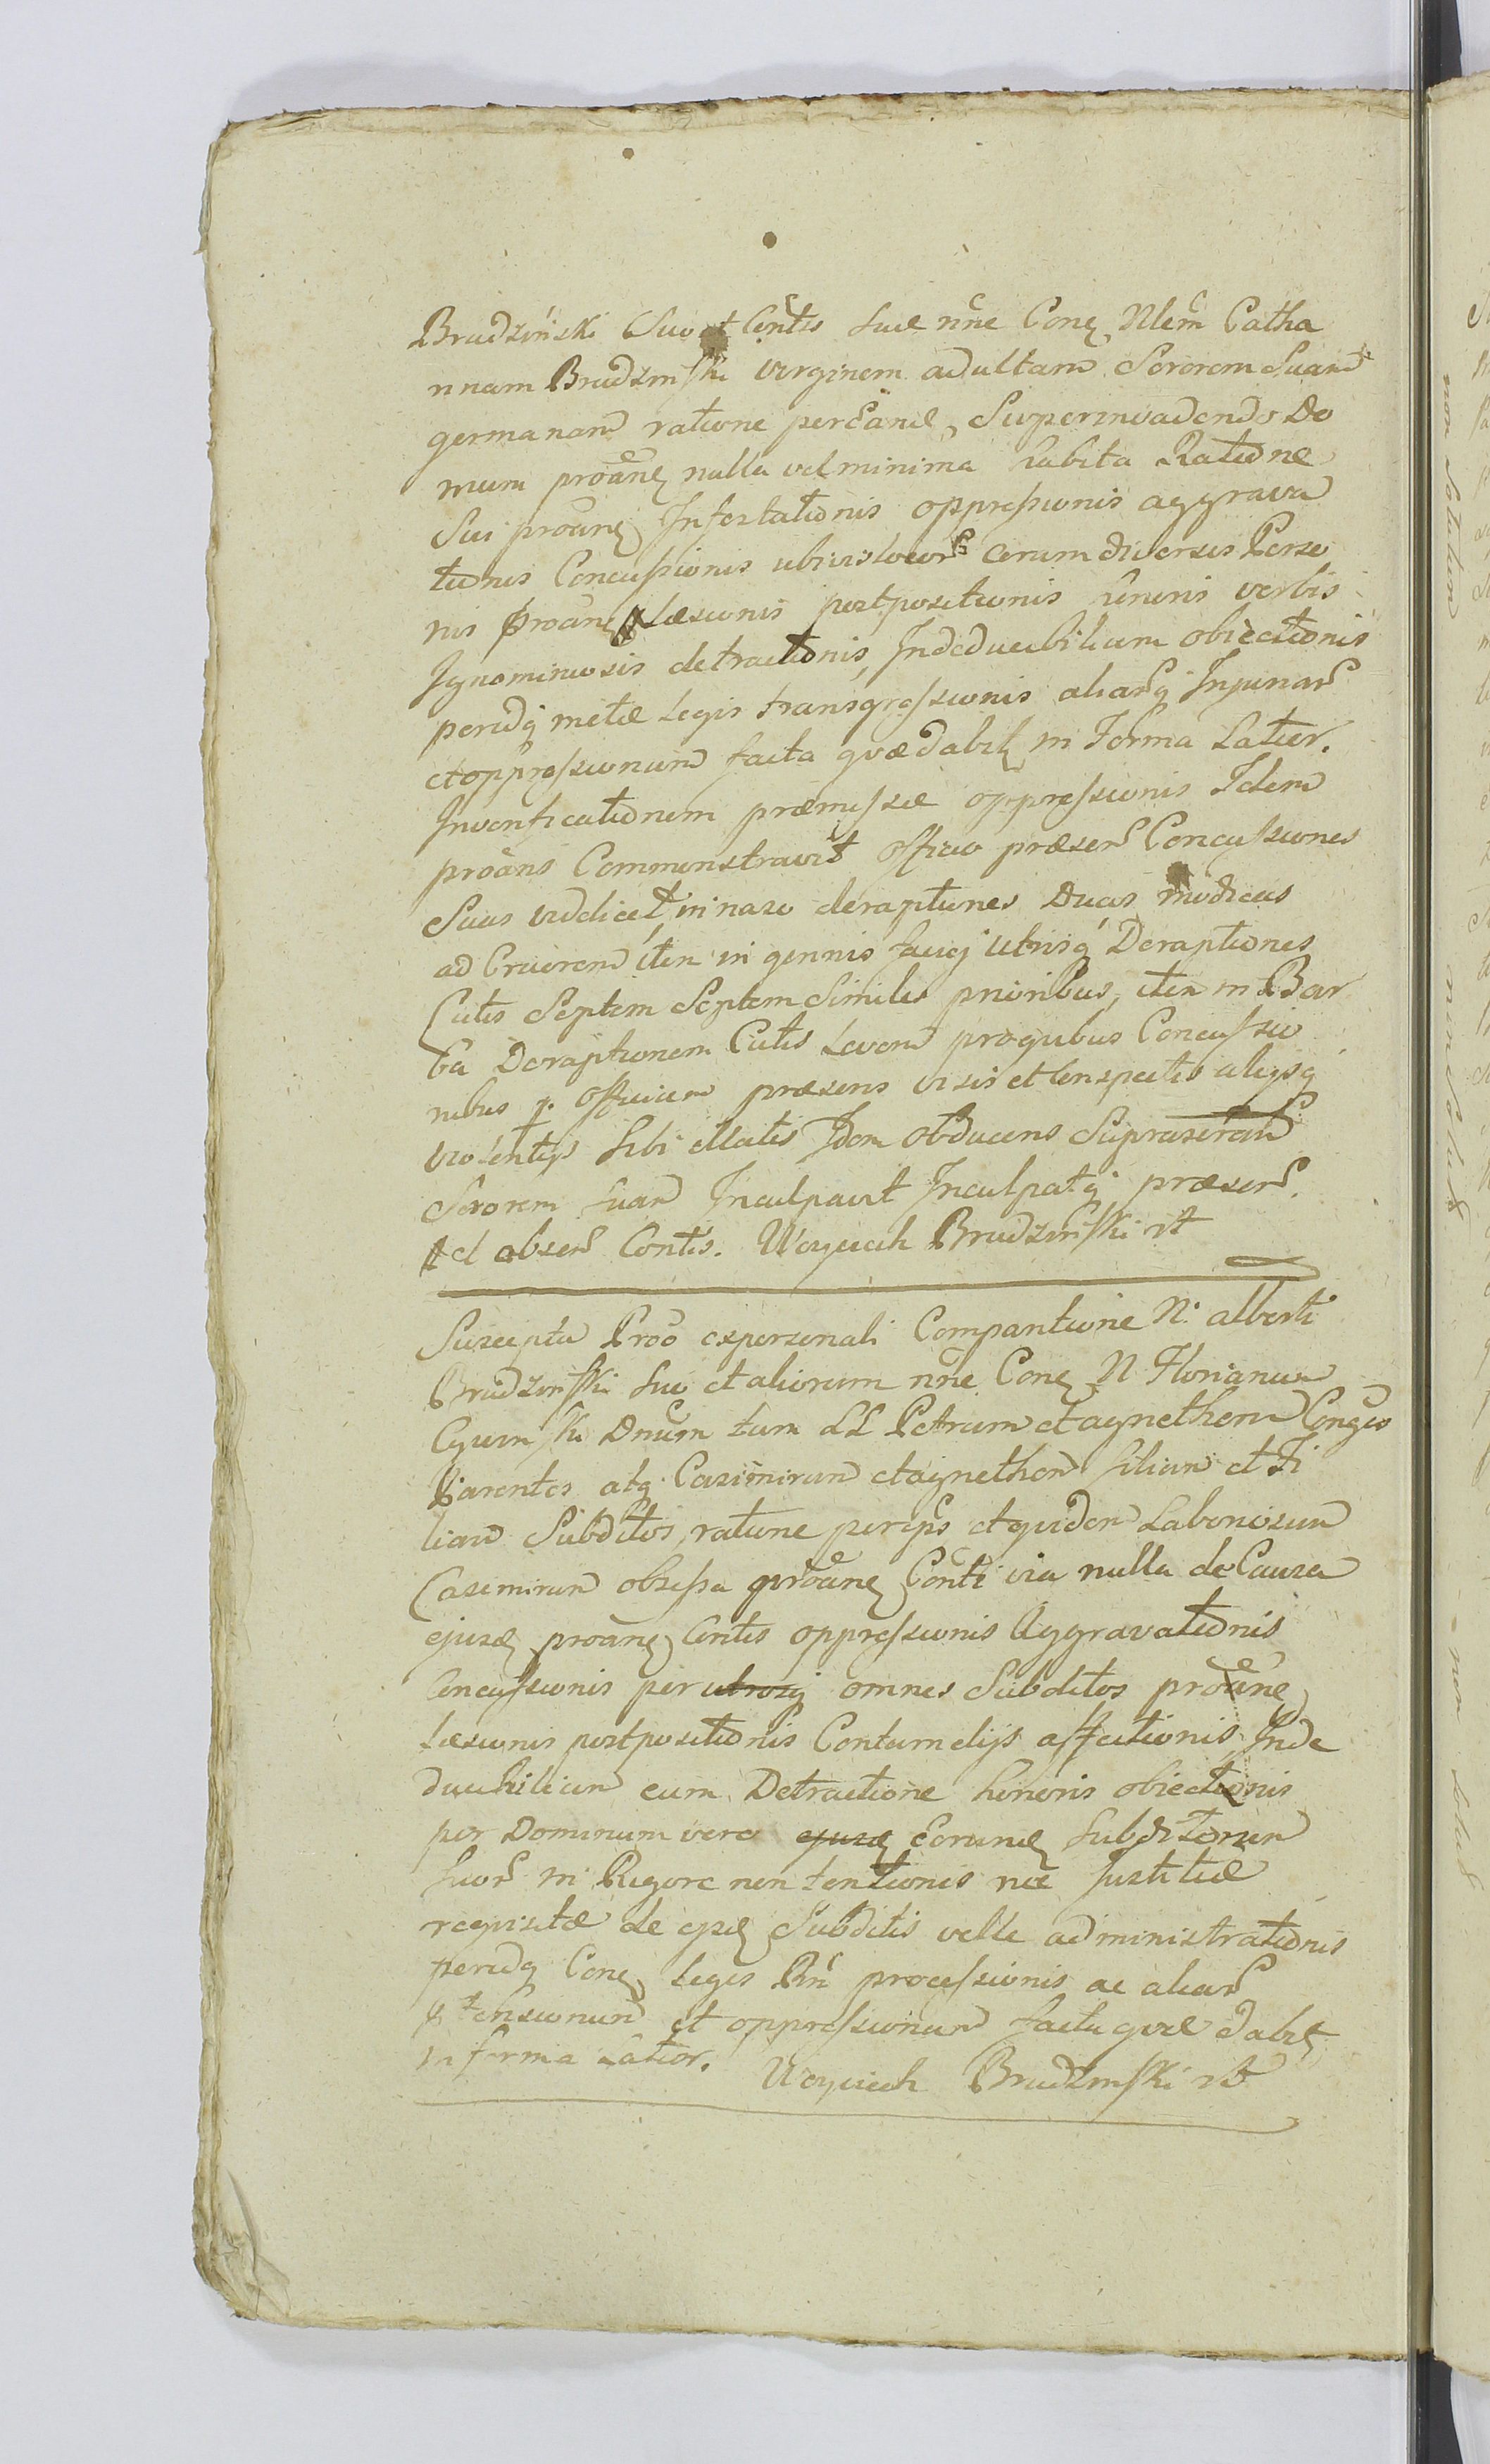 Brudziński Suo et Contis suæ nne Conq Nlem Catha
nnam Brudzinski virginem adultam Sororem Suam
germanam ratione per Eand, Superinvadendo Do
mum proanq nulla vel minima habita Ratione
Sui proanq Infestationis oppressionis aggrava
tionis Concussionis ubivis locor coram diversis Perso
nis proanq læsionis postpositionis honoris verbis
Ignominiosis detractionis, Indeducibilium obiectionis
peridq metæ Legis transgressionis aliarq Injuriar
et oppressionum facta quæ dabit in Forma Latior.
In verificationem præmissæ oppressionis Idem
proans Commonstravit officio præsen Concussiones
Suas videlicet, in naso deraptiones Duas modicas
ad Cruorem item in gennis faciej utrisq Deraptiones
Cutis Septem Septem Similes prioribus, item in Bar
ba Deraptionem Cutis Levem pro quibus Concussio
nibus p. officium præsens visis et Conspectis alijsq
violentijs sibi illatis Idem obducens Suprascriptam
Sororem suam Inculpavit Inculpatq præsen.
Ad absen Contis. Woyciech Brudzinski rt
Suscepta Pro ex personali Comparitione N. alberti
Brudzinski suo et aliorum nne Conq N Florianum
Dnum tum LL Petrum et agnethem Conges
Parentes atq Casimirum et agnethem filium et Fi
liam Subditos, ratione per eps et quidem Laboriosum
Casimirum obsessa proanq Conti via nulla de Causa
ejusq proanq Contis oppressionis Aggravationis
Concussionis per utrosq omnes Subditos proanq
læsionis postpositionis Contumelijs affectionis Inde
ducibilium cum Detractione honoris obiectionis
per Dominum vero ejusq Eorundq Subditorum
suor in Rigore non tentionis nec Justitiæ
requisitæ de ejsdq Subditis velle administrationis
peridq Conq Legis Rni processionis ac aliar
offensionum et oppressionum facta quæ dabit
in forma Latior. Woyciech Brudzinski rt